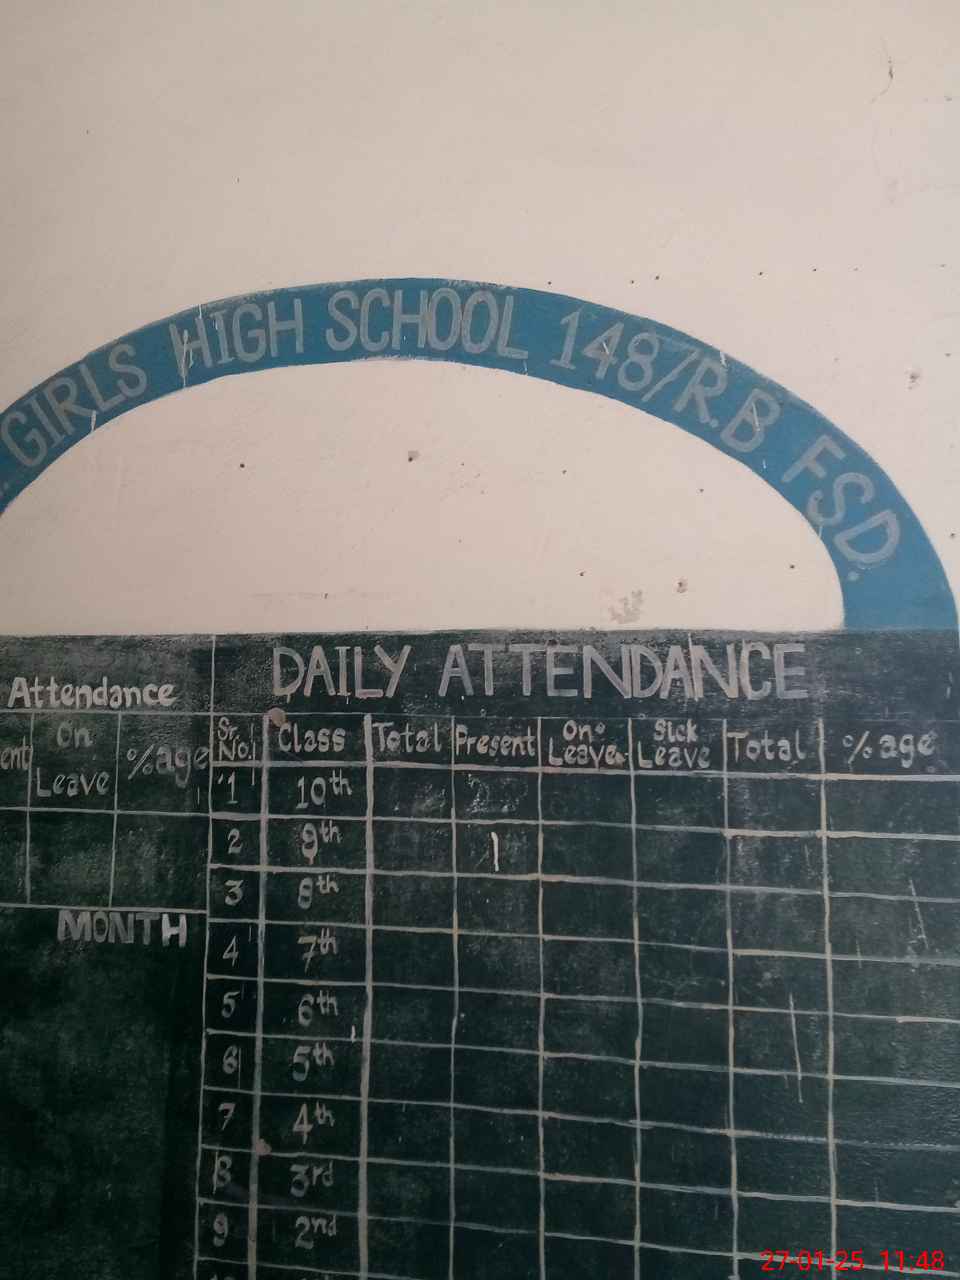 GIRLS HIGH SCHOOL 148/R.B FSD.
Attendance
DAILY ATTENDANCE
On Leave %age
Sr. No. Class Total Present On Leave Sick Leave Total %age
1 10th
2 9th 1
3 8th
MONTH
4 7th
5 6th
6 5th
7 4th
8 3rd
9 2nd
27-01-25 11:48